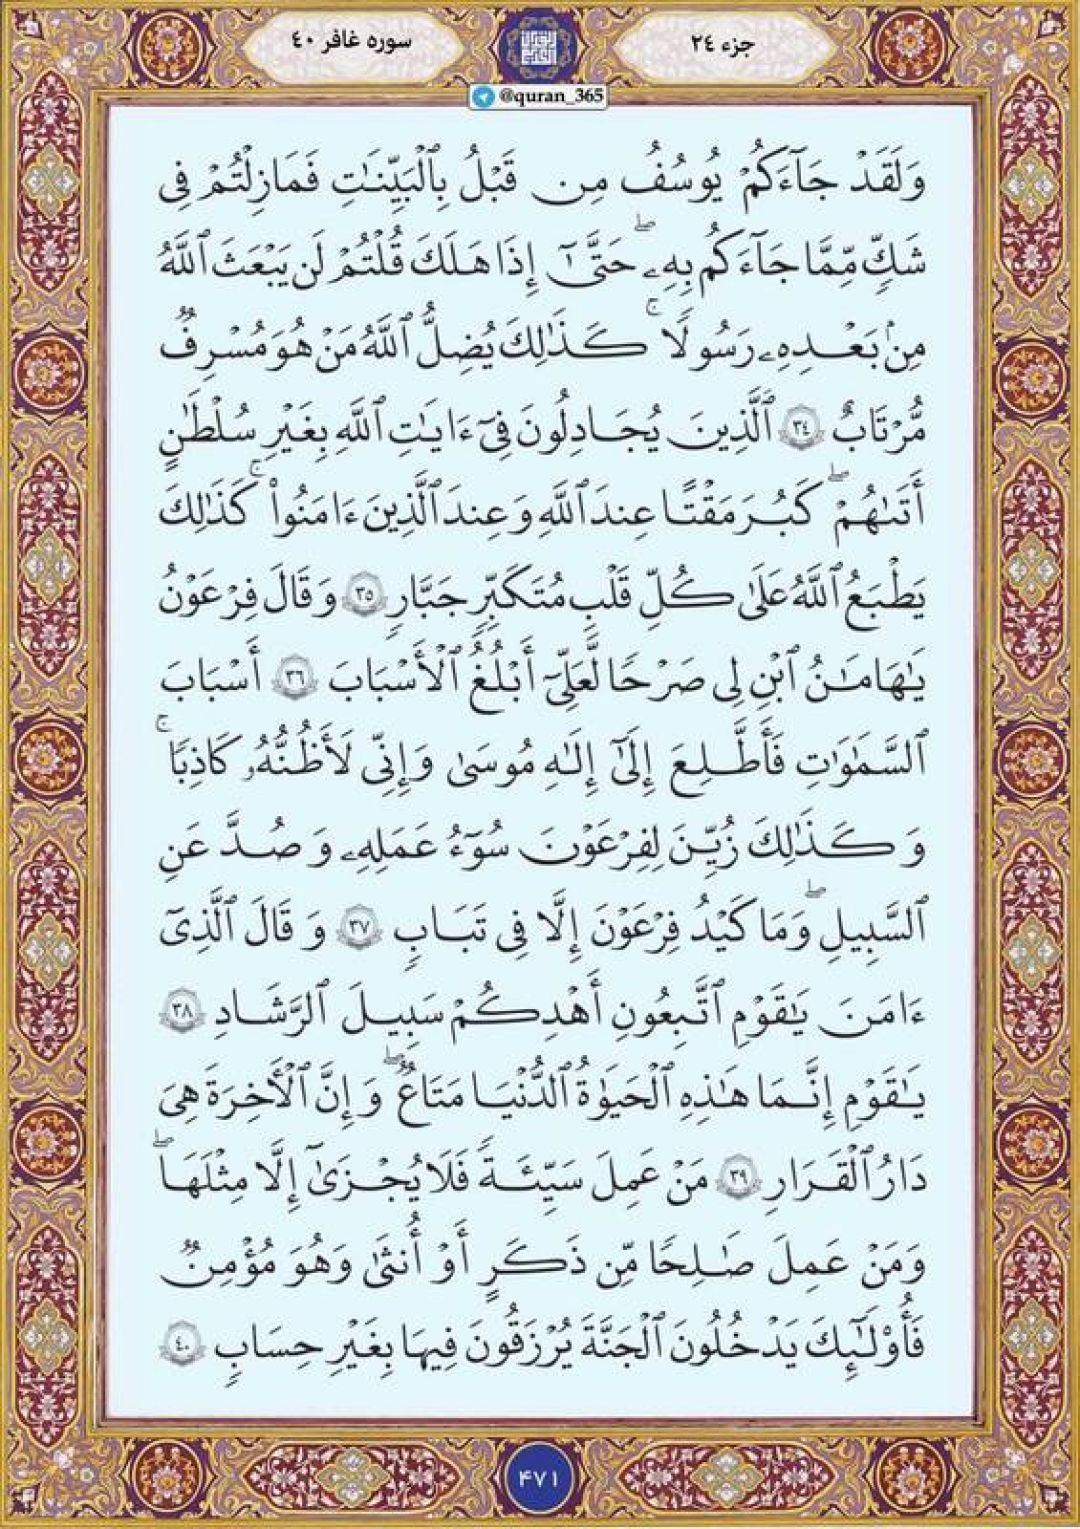 جزء ٢٤
سوره غافر ٤٠
@quran_365
وَلَقَدْ جَآءَكُمْ يُوسُفُ مِن قَبْلُ بِٱلْبَيِّنَٰتِ فَمَازِلْتُمْ فِى
شَكٍّ مِّمَّا جَآءَكُم بِهِۦۖ حَتَّىٰٓ إِذَا هَلَكَ قُلْتُمْ لَن يَبْعَثَ ٱللَّهُ
مِنۢ بَعْدِهِۦ رَسُولًاۚ كَذَٰلِكَ يُضِلُّ ٱللَّهُ مَنْ هُوَ مُسْرِفٌ
مُّرْتَابٌ ٣٤ ٱلَّذِينَ يُجَادِلُونَ فِىٓ ءَايَٰتِ ٱللَّهِ بِغَيْرِ سُلْطَٰنٍ
أَتَىٰهُمْۖ كَبُرَ مَقْتًا عِندَ ٱللَّهِ وَعِندَ ٱلَّذِينَ ءَامَنُوا۟ۚ كَذَٰلِكَ
يَطْبَعُ ٱللَّهُ عَلَىٰ كُلِّ قَلْبِ مُتَكَبِّرٍ جَبَّارٍ ٣٥ وَقَالَ فِرْعَوْنُ
يَٰهَامَٰنُ ٱبْنِ لِى صَرْحًا لَّعَلِّىٓ أَبْلُغُ ٱلْأَسْبَابَ ٣٦ أَسْبَابَ
ٱلسَّمَٰوَٰتِ فَأَطَّلِعَ إِلَىٰٓ إِلَٰهِ مُوسَىٰ وَإِنِّى لَأَظُنُّهُۥ كَاذِبًاۚ
وَكَذَٰلِكَ زُيِّنَ لِفِرْعَوْنَ سُوٓءُ عَمَلِهِۦ وَصُدَّ عَنِ
ٱلسَّبِيلِۖ وَمَا كَيْدُ فِرْعَوْنَ إِلَّا فِى تَبَابٍ ٣٧ وَقَالَ ٱلَّذِىٓ
ءَامَنَ يَٰقَوْمِ ٱتَّبِعُونِ أَهْدِكُمْ سَبِيلَ ٱلرَّشَادِ ٣٨
يَٰقَوْمِ إِنَّمَا هَٰذِهِ ٱلْحَيَوٰةُ ٱلدُّنْيَا مَتَاعٌۖ وَإِنَّ ٱلْأَخِرَةَ هِىَ
دَارُ ٱلْقَرَارِ ٣٩ مَنْ عَمِلَ سَيِّئَةً فَلَا يُجْزَىٰٓ إِلَّا مِثْلَهَاۖ
وَمَنْ عَمِلَ صَٰلِحًا مِّن ذَكَرٍ أَوْ أُنثَىٰ وَهُوَ مُؤْمِنٌ
فَأُو۟لَٰٓئِكَ يَدْخُلُونَ ٱلْجَنَّةَ يُرْزَقُونَ فِيهَا بِغَيْرِ حِسَابٍ ٤٠
۴۷۱